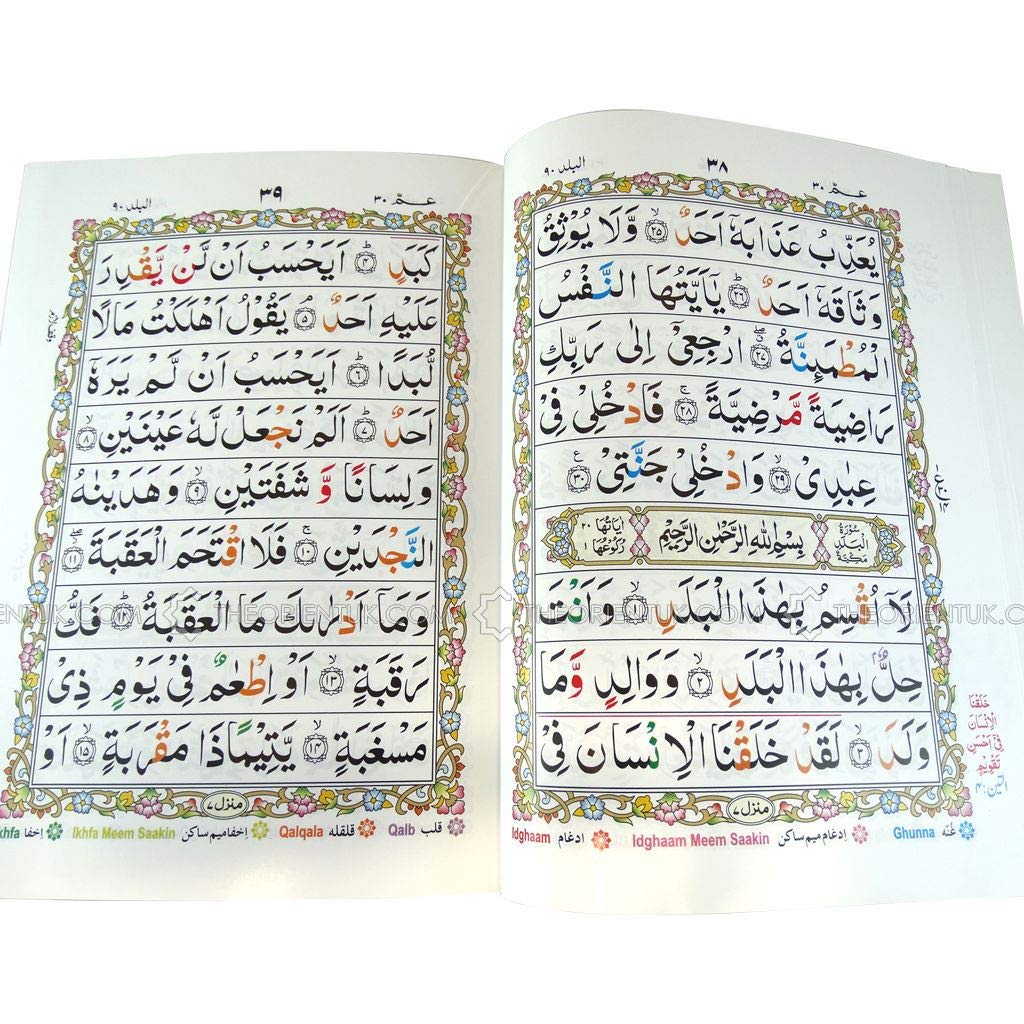 عمّ ٣٠
٣٨
البلد ٩٠
يُعَذِّبُ عَذَابَهٗۤ اَحَدٌ ﴿٢٥﴾ۙ وَّلَا يُوْثِقُ
وَثَاقَهٗۤ اَحَدٌ ﴿٢٦﴾ؕ يٰۤاَيَّتُهَا النَّفْسُ
الْمُطْمَئِنَّةُ ﴿٢٧﴾ ارْجِعِيْۤ اِلٰى رَبِّكِ
رَاضِيَةً مَّرْضِيَّةً ﴿٢٨﴾ۚ فَادْخُلِيْ فِيْ
عِبٰدِيْ ﴿٢٩﴾ۙ وَادْخُلِيْ جَنَّتِيْ ﴿٣٠﴾
سُوْرَةُ الْبَلَدِ مَكِّيَّةٌ
بِسْمِ اللّٰهِ الرَّحْمٰنِ الرَّحِيْمِ
اٰيَاتُهَا ٢٠
رُكُوْعُهَا ١
لَاۤ اُقْسِمُ بِهٰذَا الْبَلَدِ ﴿١﴾ۙ وَاَنْتَ
حِلٌّۢ بِهٰذَا الْبَلَدِ ﴿٢﴾ۙ وَوَالِدٍ وَّمَا
وَلَدَ ﴿٣﴾ۙ لَقَدْ خَلَقْنَا الْاِنْسَانَ فِيْ
خَلَقْنَا
الْاِنْسَانَ
فِيْۤ اَحْسَنِ
تَقْوِيْمٍ
التين ٤
منزل ٧
غُنّه Ghunna
اِدغام ميم ساكن Idghaam Meem Saakin
ادغام Idghaam
عمّ ٣٠
٣٩
البلد ٩٠
كَبَدٍ ﴿٤﴾ؕ اَيَحْسَبُ اَنْ لَّنْ يَّقْدِرَ
عَلَيْهِ اَحَدٌ ﴿٥﴾ۘ يَقُوْلُ اَهْلَكْتُ مَالًا
لُّبَدًا ﴿٦﴾ؕ اَيَحْسَبُ اَنْ لَّمْ يَرَهٗۤ
اَحَدٌ ﴿٧﴾ؕ اَلَمْ نَجْعَلْ لَّهٗ عَيْنَيْنِ ﴿٨﴾ۙ
وَلِسَانًا وَّشَفَتَيْنِ ﴿٩﴾ۙ وَهَدَيْنٰهُ
النَّجْدَيْنِ ﴿١٠﴾ۚ فَلَا اقْتَحَمَ الْعَقَبَةَ ﴿١١﴾
وَمَاۤ اَدْرٰىكَ مَا الْعَقَبَةُ ﴿١٢﴾ؕ فَكُّ
رَقَبَةٍ ﴿١٣﴾ۙ اَوْ اِطْعٰمٌ فِيْ يَوْمٍ ذِيْ
مَسْغَبَةٍ ﴿١٤﴾ۙ يَّتِيْمًا ذَا مَقْرَبَةٍ ﴿١٥﴾ۙ اَوْ
منزل ٧
قلب Qalb
قلقله Qalqala
اِخفا ميم ساكن Ikhfa Meem Saakin
اِخفا khfa
THEORIENTUK.COM
THEORIENTUK.COM